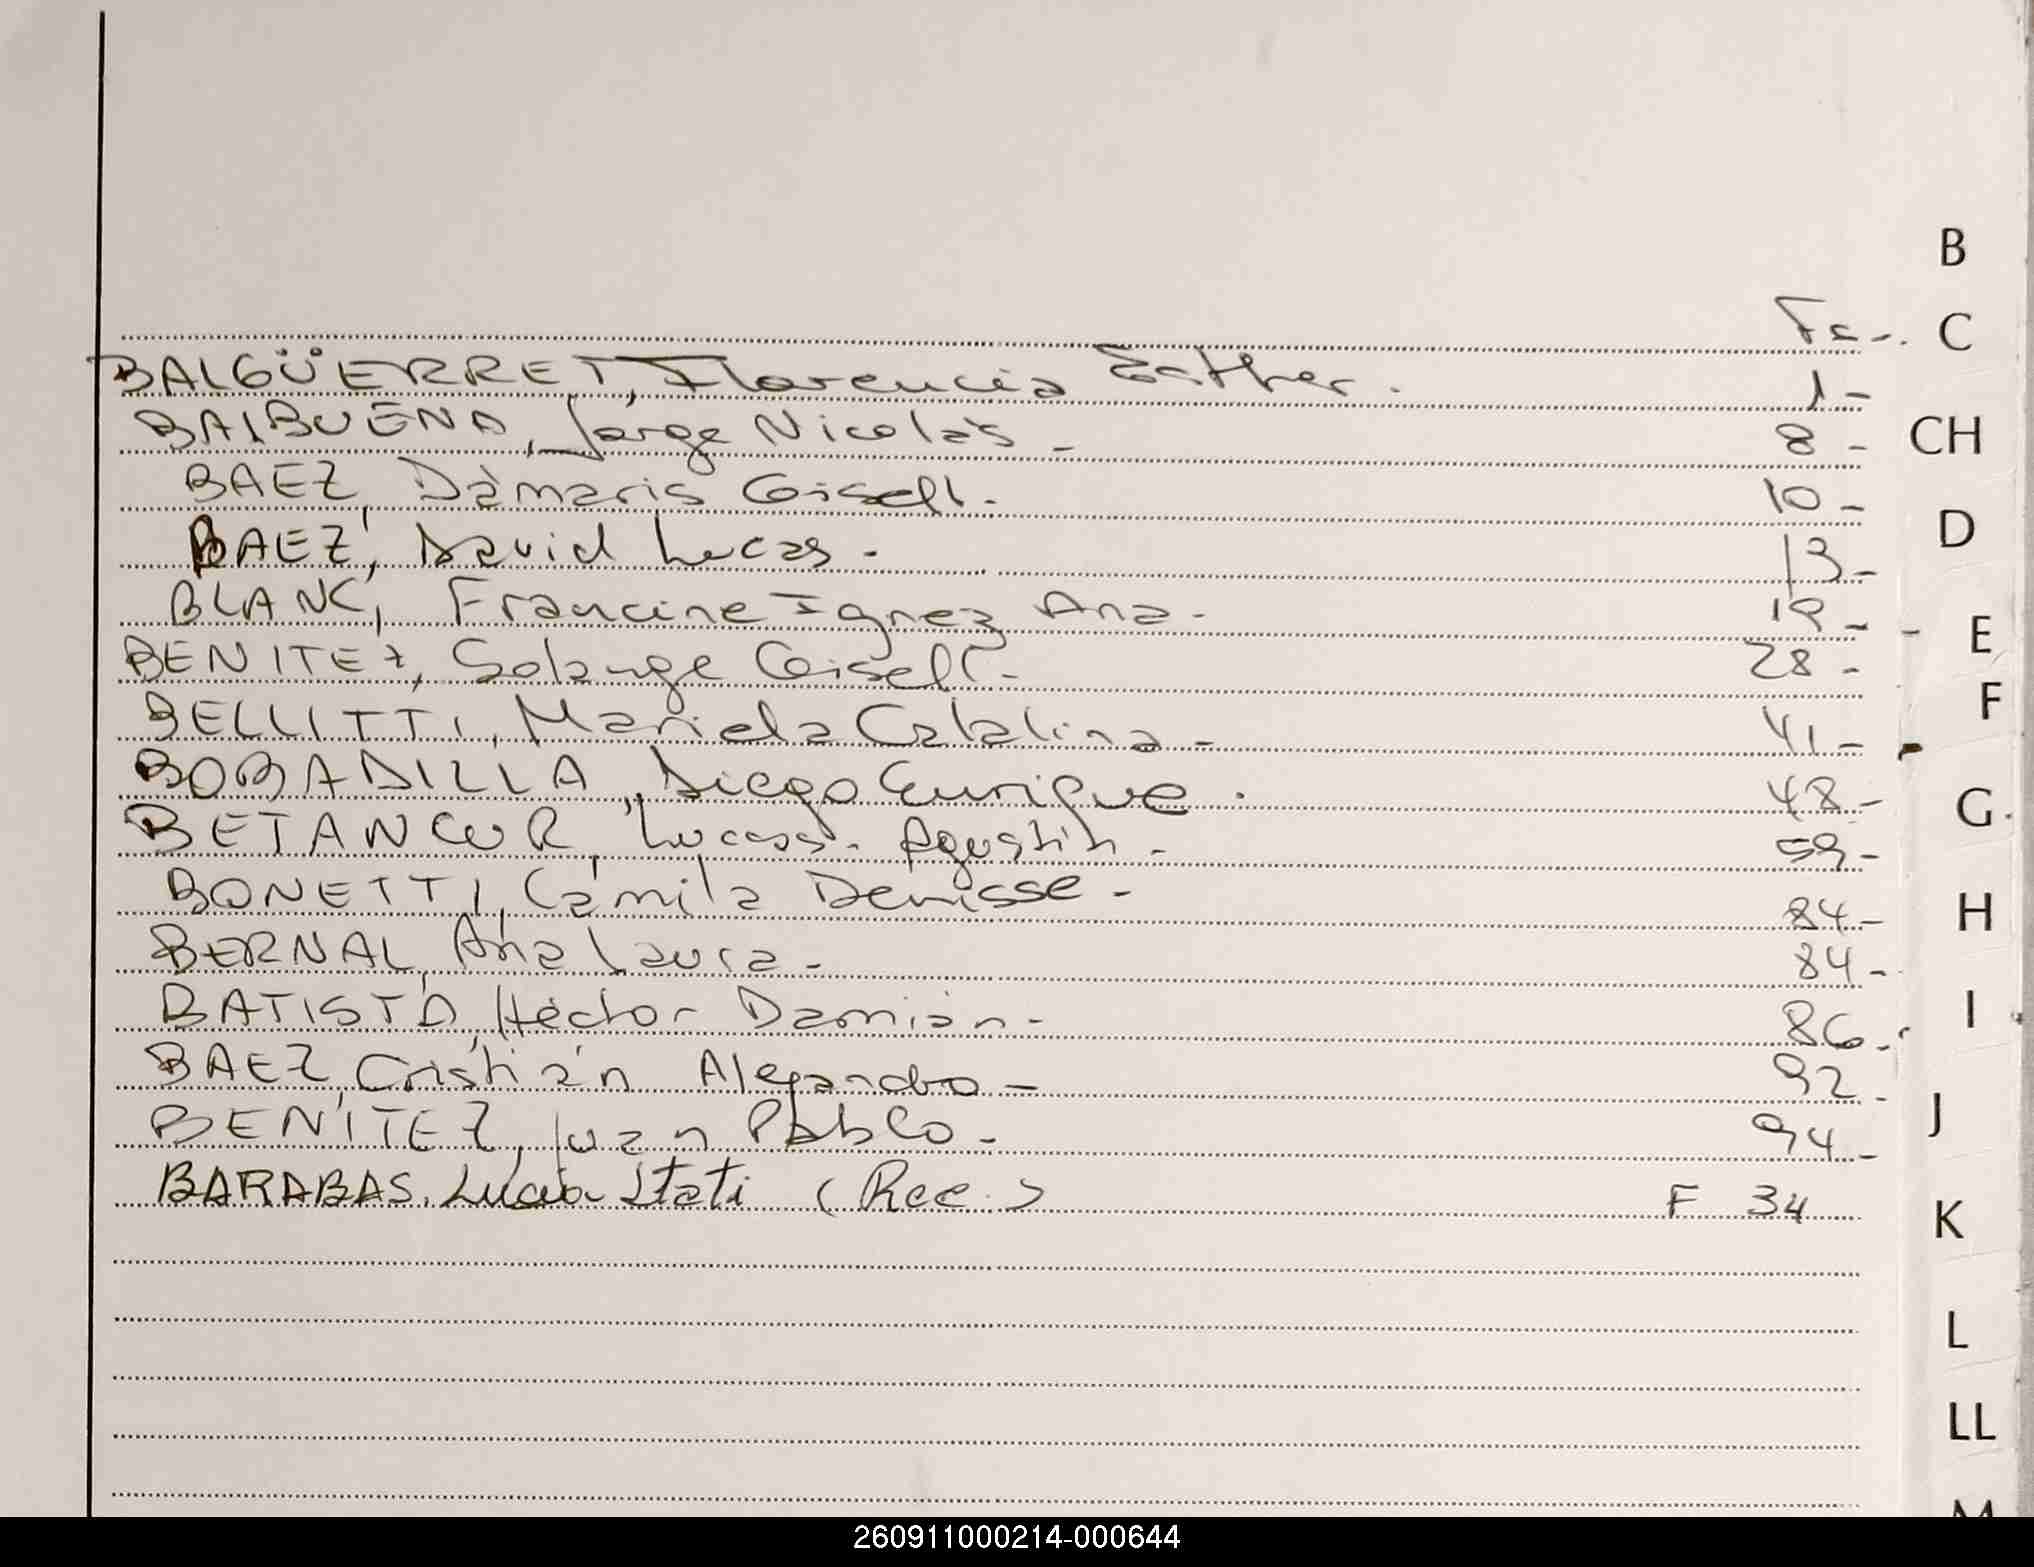 B
Fs-. C
BALGÜERRET, Florencia Esther. 1-
BALBUENA, Jorge Nicolás - 8 - CH
BAEZ, Dàmaris Gisell. 10 -
D
BAEZ, David Lucas - 13-
BLANC, Francine Ignez Ana - 19 -
E
BENITEZ, Solange Gisell - 28 -
F
BELLITTI, Mariela Catalina - 41 -
BOBADILLA, Diego Enrique. 48 -
G
BETANCUR, Lucas. Agustín - 59-
BONETTI, Camila Denisse - 84- H
BERNAL, Ana Laura - 84 -
BATISTA, Héctor Damián - 86 - I
BAEZ, Cristián Alejandro - 92 -
J
BENITEZ, Juan Pablo. 94 -
BARABAS, Lucia Itati (Rec.) F 34 K
L
LL
M
260911000214-000644